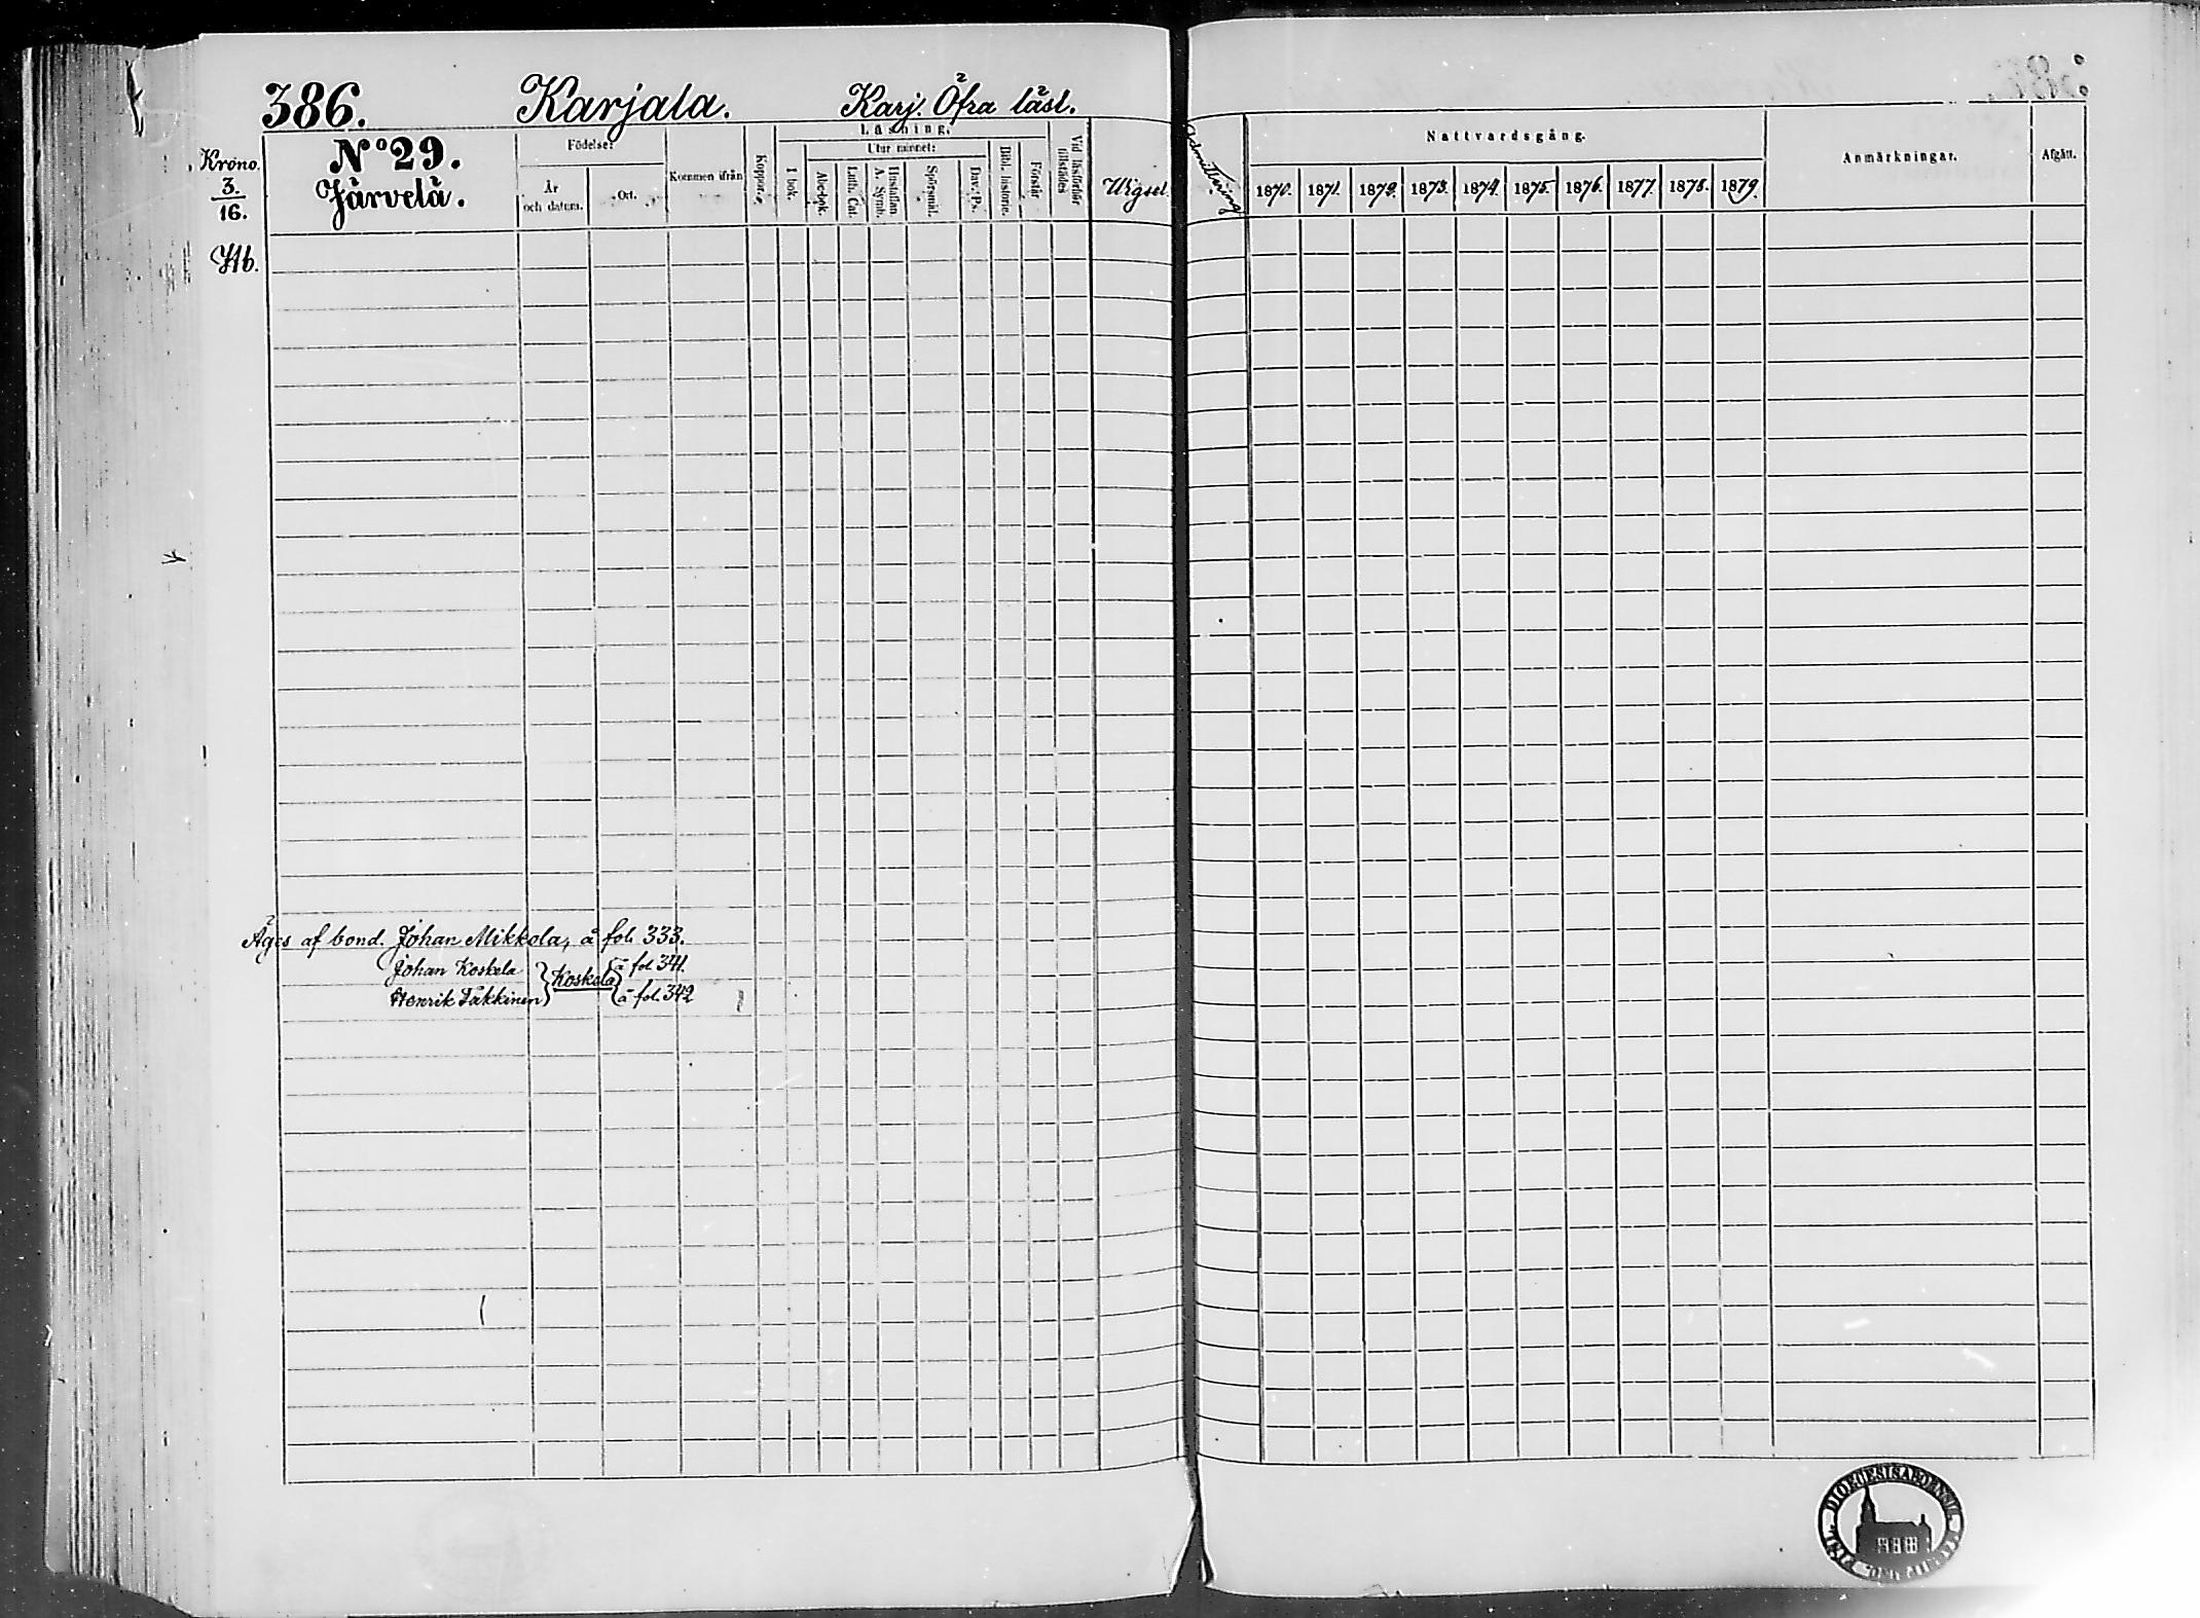 386. Karjala. Karj. Öfra läsl.
Krono.
3.
16.
Hb.
No 29.
Järvelä.
Födelse:
År
och datum.
Ort.
Kommen ifrån
Koppor.
Läsning.
Utur minnet:
I bok.
Abc-bok.
Luth. Cat.
Hustaflan
A. Symb.
Spörsmål.
Dav. Ps.
Bibl. historie.
Förstår
Vid läsförhör
tillstädes
Wigsel.
Admittering
Nattvardsgång.
1870. 1871. 1872. 1873. 1874. 1875. 1876. 1877. 1878. 1879.
Anmärkningar.
Afgått.
Äges af bond. Johan Mikkola, å fol. 333.
Johan Koskela } Koskela { å fol. 341.
Henrik Takkinen } { å fol. 342
DIOECESIS ABOENSIS